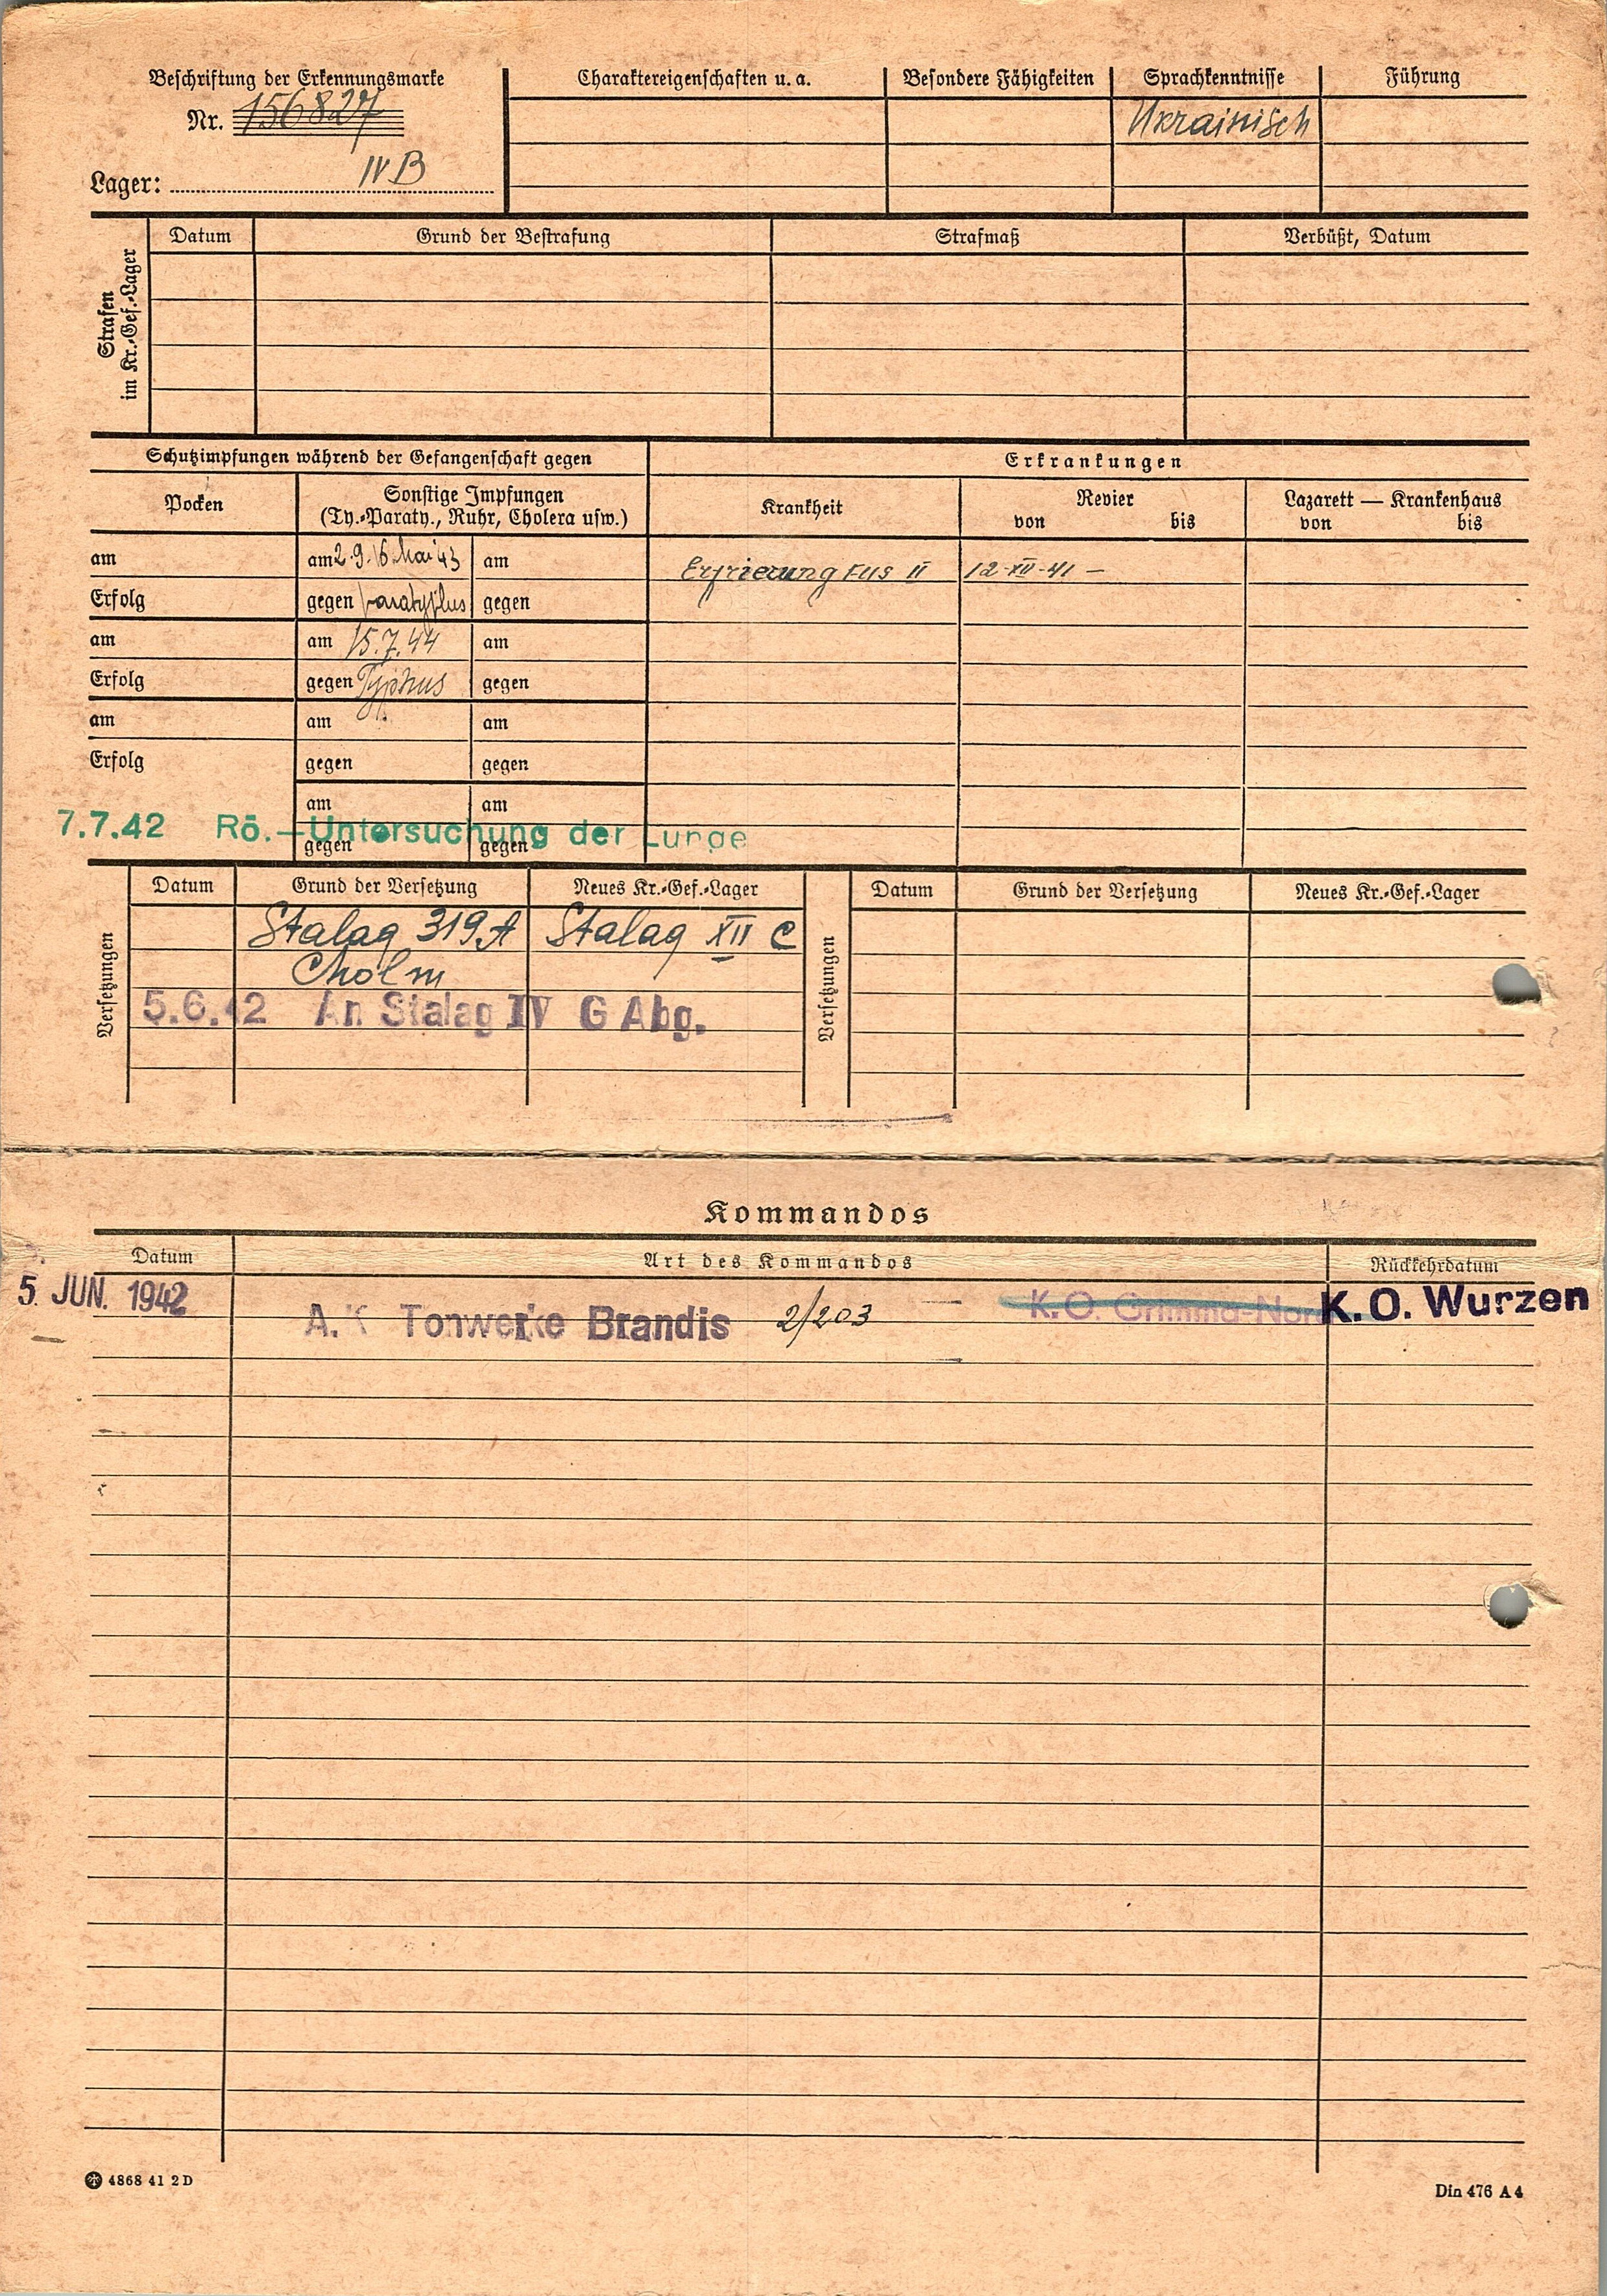 Beschriftung der Erkennungsmarke
Nr. 156827
Lager: IV B
Charaktereigenschaften u. a.
Besondere Fähigkeiten
Sprachkenntnisse
Ukrainisch
Führung
Strafen im Kr.-Gef.-Lager
Datum
Grund der Bestrafung
Strafmaß
Verbüßt, Datum
Schutzimpfungen während der Gefangenschaft gegen
Erkrankungen
Pocken
Sonstige Impfungen
(Ty.-Paraty., Ruhr, Cholera usw.)
Krankheit
Revier
von bis
Lazarett — Krankenhaus
von bis
am
am 2.9.16. Mai 43
am
Erfrierung Fus II
12-XII-41 –
Erfolg
gegen Paratyphus
gegen
am
am 15.7.44
am
Erfolg
gegen Typhus
gegen
am
am
am
Erfolg
gegen
gegen
am
am
7.7.42 Rö.-Untersuchung der Lunge
gegen
gegen
Versetzungen
Datum
Grund der Versetzung
Neues Kr.-Gef.-Lager
Versetzungen
Datum
Grund der Versetzung
Neues Kr.-Gef.-Lager
Stalag 319A
Stalag XII C
Cholm
5.6.42 An Stalag IV G Abg.
Kommandos
Datum
Art des Kommandos
Rückkehrdatum
5. JUN. 1942
A.K Tonwerke Brandis 2/203
K.O. Grimma-Nord
K.O. Wurzen
4868 41 2 D
Din 476 A 4